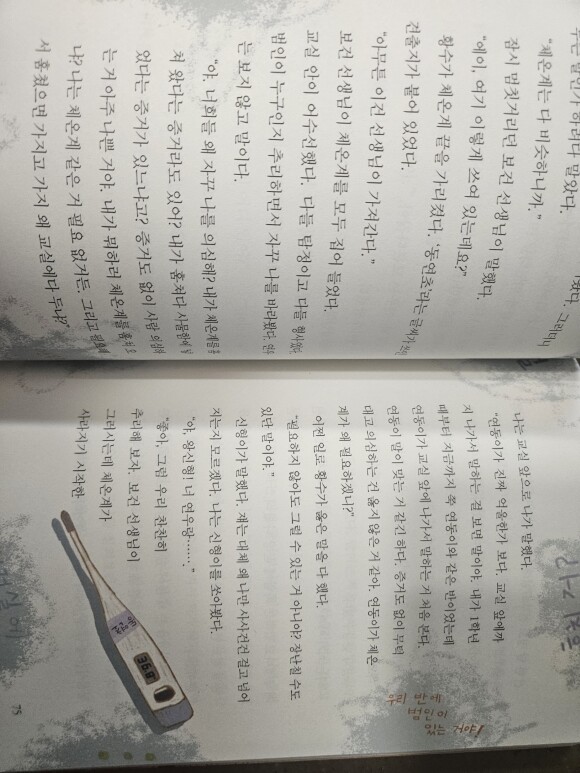 "체온계는 다 비슷하니까."
잠시 멈칫거리던 보건 선생님이 말했다.
"에이, 여기 이렇게 쓰여 있는데요?"
황수가 체온계 끝을 가리켰다. '동연초'라는 글씨가 쓰인
견출지가 붙어 있었다.
"아무튼 이건 선생님이 가져간다."
보건 선생님이 체온계를 모두 집어 들었다.
교실 안이 어수선했다. 다들 탐정이고 다들 형사였다.
범인이 누구인지 추리하면서 자꾸 나를 바라봤다.
는 보지 않고 말이다.
"야, 너희들 왜 자꾸 나를 의심해? 내가 체온계를 훔
쳐 왔다는 증거라도 있어? 내가 훔쳐다 사물함에
었다는 증거가 있느냐고? 증거도 없이 사람 의심하
는 거 아주 나쁜 거야. 내가 뭐하러 체온계를 훔쳐 오
냐? 나는 체온계 같은 거 필요 없거든. 그리고 필요해
서 훔쳤으면 가지고 가지 왜 교실에다 두냐?"
나는 교실 앞으로 나가 말했다.
"연동이가 진짜 억울한가 보다. 교실 앞에까
지 나가서 말하는 걸 보면 말이야. 내가 1학년
때부터 지금까지 쭉 연동이와 같은 반이었는데
연동이가 교실 앞에 나가서 말하는 거 처음 본다.
연동이 말이 맞는 거 같긴 하다. 증거도 없이 무턱
대고 의심하는 건 옳지 않은 거 같아. 연동이가 체온
계가 왜 필요하겠니?"
어쩐 일로 황수가 옳은 말을 다 했다.
"필요하지 않아도 그럴 수 있는 거 아니야? 장난칠 수도
있단 말이야."
신형이가 말했다. 쟤는 대체 왜 나만 사사건건 걸고 넘어
지는지 모르겠다. 나는 신형이를 쏘아봤다.
"야, 왕신형! 너 연우랑……."
"좋아, 그럼 우리 찬찬히
추리해 보자. 보건 선생님이
그러시는데 체온계가
사라지기 시작한
우리 반에
범인이
있는 거야!
75